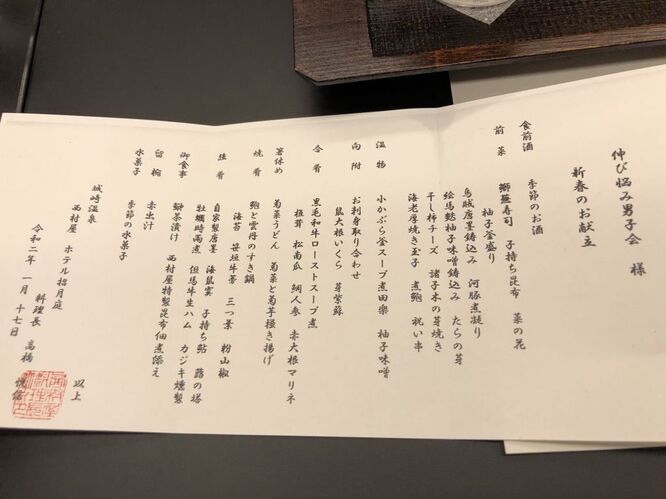 伸び悩み男子会 様
新春のお献立
食前酒 季節のお酒
前菜 鰤蕪寿司 子持ち昆布 菜の花
柚子釜盛り
烏賊唐墨鋳込み 河豚煮凝り
絵馬麩柚子味噌鋳込み たらの芽
干し柿チーズ 諸子木の芽焼き
海老厚焼き玉子 煮鮑 祝い串
温物 小かぶら釜スープ煮田楽 柚子味噌
向附 お刺身取り合わせ
鼠大根いくら 芽紫蘇
合肴 黒毛和牛ローストスープ煮
椎茸 松南瓜 鯛人参 赤大根マリネ
箸休め 菊菜うどん 菊菜と菊芋掻き揚げ
焼肴 鮑と雲丹のすき鍋
海苔 笹垣牛蒡 三つ葉 粉山椒
強肴 自家製唐墨 海鼠雲 子持ち鮎 蕗の塔
牡蠣時雨煮 但馬牛生ハム カジキ燻製
御食事 鰤茶漬け 西村屋特製昆布佃煮添え
留椀 赤出汁
水菓子 季節の水菓子
以上
城崎温泉
西村屋 ホテル招月庭
料理長 高橋
令和二年 一月 十七日